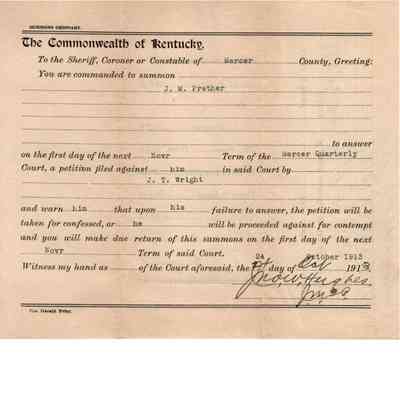 SUMMONS ORDINARY.
The Commonwealth of Kentucky,
To the Sheriff, Coroner or Constable of Mercer County, Greeting:
You are commanded to summon
J. M. Prather
to answer
on the first day of the next Novr Term of the Mercer Quarterly
Court, a petition filed against him in said Court by
J. T. Wright
and warn him that upon his failure to answer, the petition will be
taken for confessed, or he will be proceeded against for contempt
and you will make due return of this summons on the first day of the next
Novr Term of said Court. 24 October 1913
Witness my hand as of the Court aforesaid, the day of Oct 1913
Jno. W. Hughes